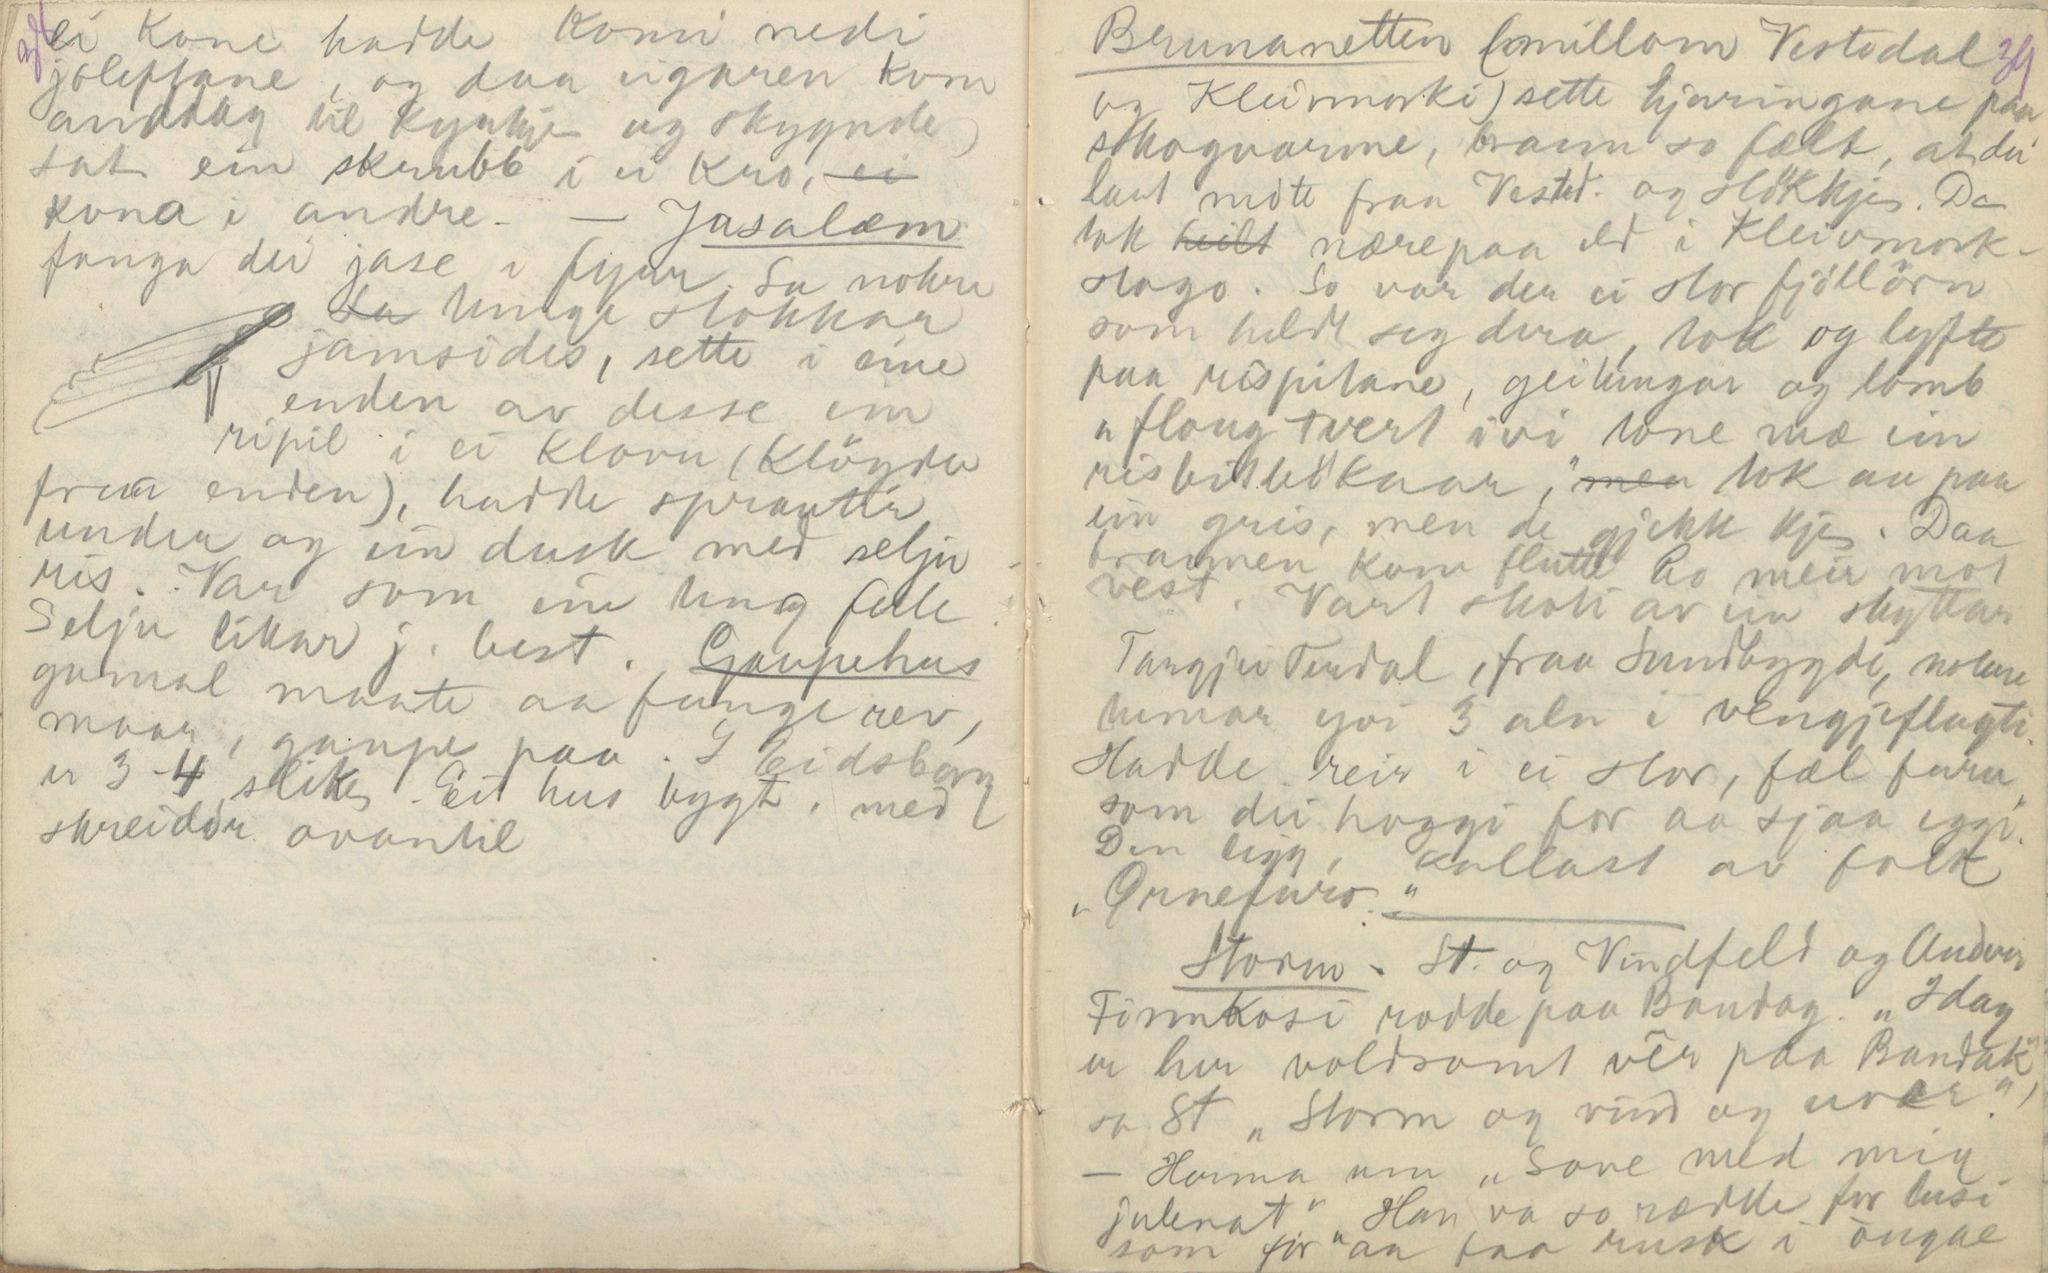 38
ei kone hadde komi nedi
joleftane, og daa eigaren kom
anddag til kyrkje og skygnde,
sat ein skrubb i ei kro, ei
kona i andre. — Jasalæm
fanga dei jase i fyrr. La nokre
La tunge stokkar
jamsides, sette i eine
enden av desse ein
ripil i ei klovu (kløyvde
fraa enden), hadde sprautir
under og ein dusk med selju
ris. Var som ein tung felle
Selju likar j. best. Gaupehus
gamal maate aa fange rev,
maar, gaupe paa. I Eidsborg
er 3-4 slike. Eit hus bygt, med
skreidör ovantil
39
Brunanetten (millom Vestsdal
og Kleivmorki) sette hjuringane paa
skogvarme, brann so fælt, at dei
laut møte fraa Vestsd. og Høkkjes. Da
tok heilt nære paa eld i Kleivmork-
skogo. So var der ei stor fjöllörn
som heldt seg dera, tok og lyfte
paa rispitane, geitungar og lomb
"floug tvert ivi tone mæ ein
risbitbökaar," men tok au paa
ein gris, men de gjekk kje. Daa
brannen kom flutte ho meir mot
vest. Vart skoti av ein skyttar
Targjei Tendal, fraa Sundbygdi, nokre
tumar yvi 3 aln i vengjeflugti.
Hadde reir i ei stor, fæl furu,
som dei hoggi for aa sjaa eggi.
Den ligg, kallast av folk
"Ørnefuro."
Storm. St. og Vindfeld og Anders
Finnkosi rodde paa Bandag. "Idag
er her voldsomt vêr paa Bandak",
sa St "Storm og vind og uvær",
— Herma um "Sove med mig
julenat" "Han va so rædde for lusi
som for aa faa rusk i öugae